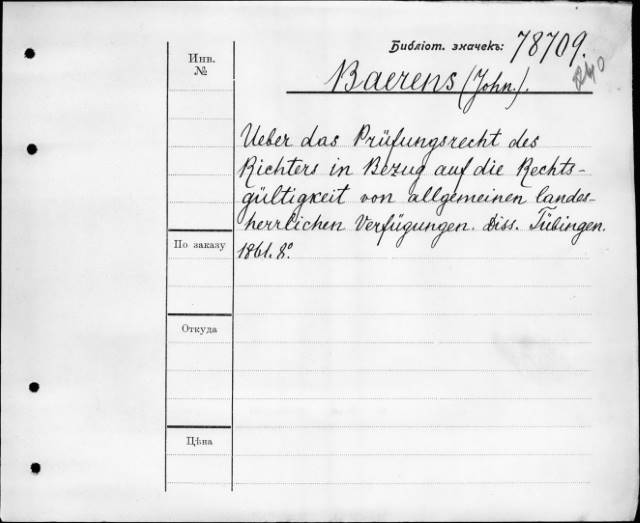 Библіот. значекъ: 78709.
Baerens (John.).
Инв.
№
Ueber das Prüfungsrecht des
Richters in Bezug auf die Rechts-
gültigkeit von allgemeinen landes-
herrlichen Verfügungen. Diss. Tübingen.
1861. 8°.
По заказу
Откуда
Цѣна